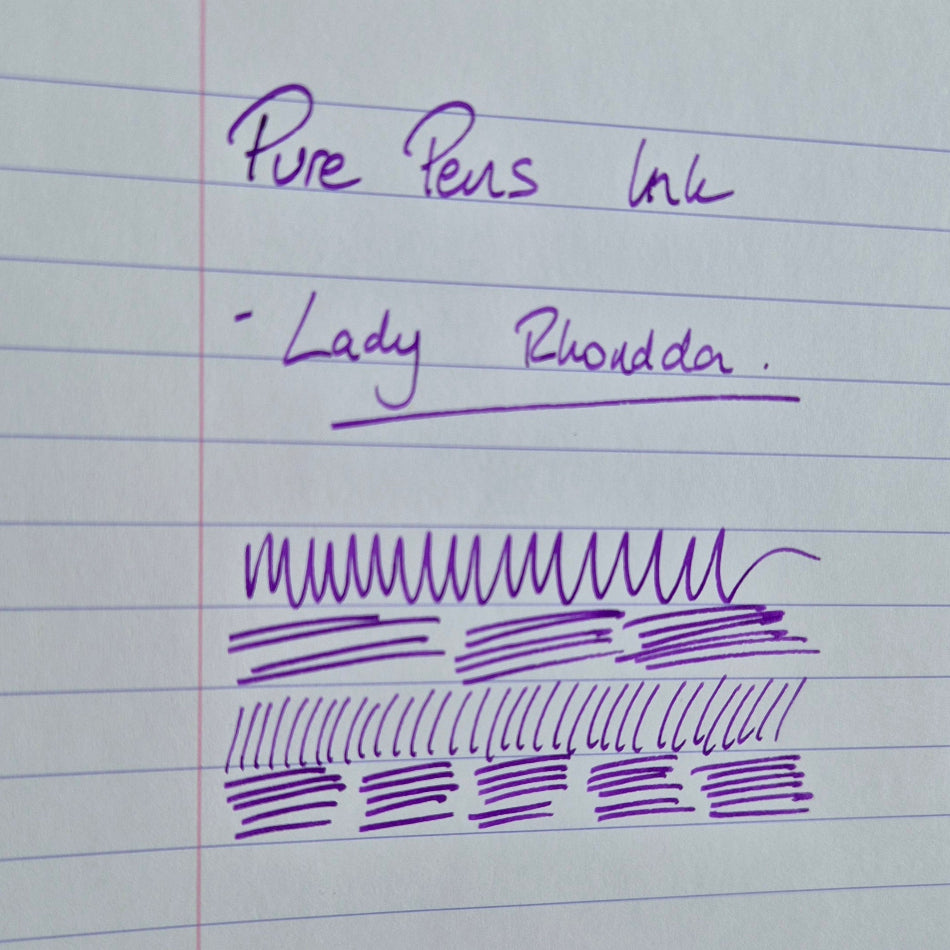 Pure Pens Ink
- Lady Rhondda.